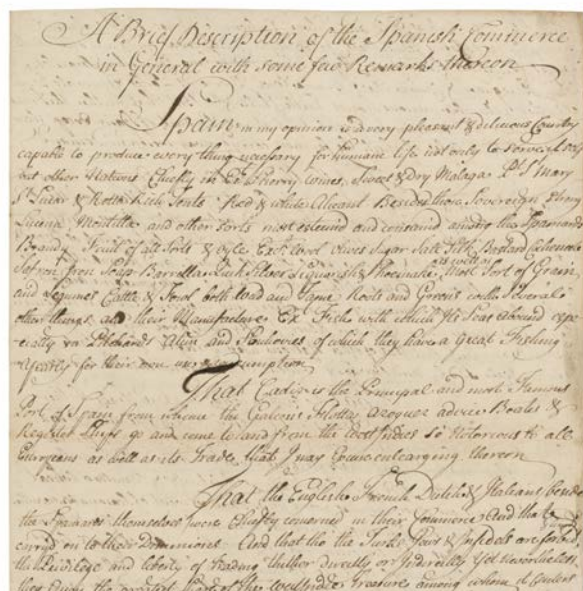 A Brief Description of the Spanish Commerce
in General with some few Remarks thereon
Spain in my opinion is a very pleasant & delicious Country
capable to produce every thing necessary for humane life not only to serve
but other Nations Chiefly in Sherry wines, Sweet & Dry Malaga Pt St Mary
St Lucar & Rota Rich Tents Red & white Alicant Besides those Sovereign
Lucena, Montilla and other sorts most esteemd and consumd among the Spaniards
Brandy Fruit of all sorts & oyle wool olives Sugar Salt Silk Bastard
Safron Iron Soap Barrella Quick Silver Liquorish & Shoemake most Sort of Grain
and Legumes Cattle & Fowl both Wild and Tame Roots and Greens with Several
other things and their Manufacture Ex Fish with which the Seas abound
Pilchards and Anchovies of which they have a Great Fishing
Yearly for their own
That Cadiz is the Principal and most Famous
Port of Spain from whence the Galeons Flottas advice Boates &
Register Ships go and come to and from the West Indies so Notorious to all
Europeans as well as its Trade, that I may enlarging thereon
That the English French Dutch & Italians
the Spaniards themselves were Chiefly concerned in their Commerce And that
carryd on to their Dominions And that tho the Turks Jews & Infidels are
the Priviledge and liberty of trading thither directly or Indirectly Yet nevertheless
they the greatest part of the West India Treasure among whom it